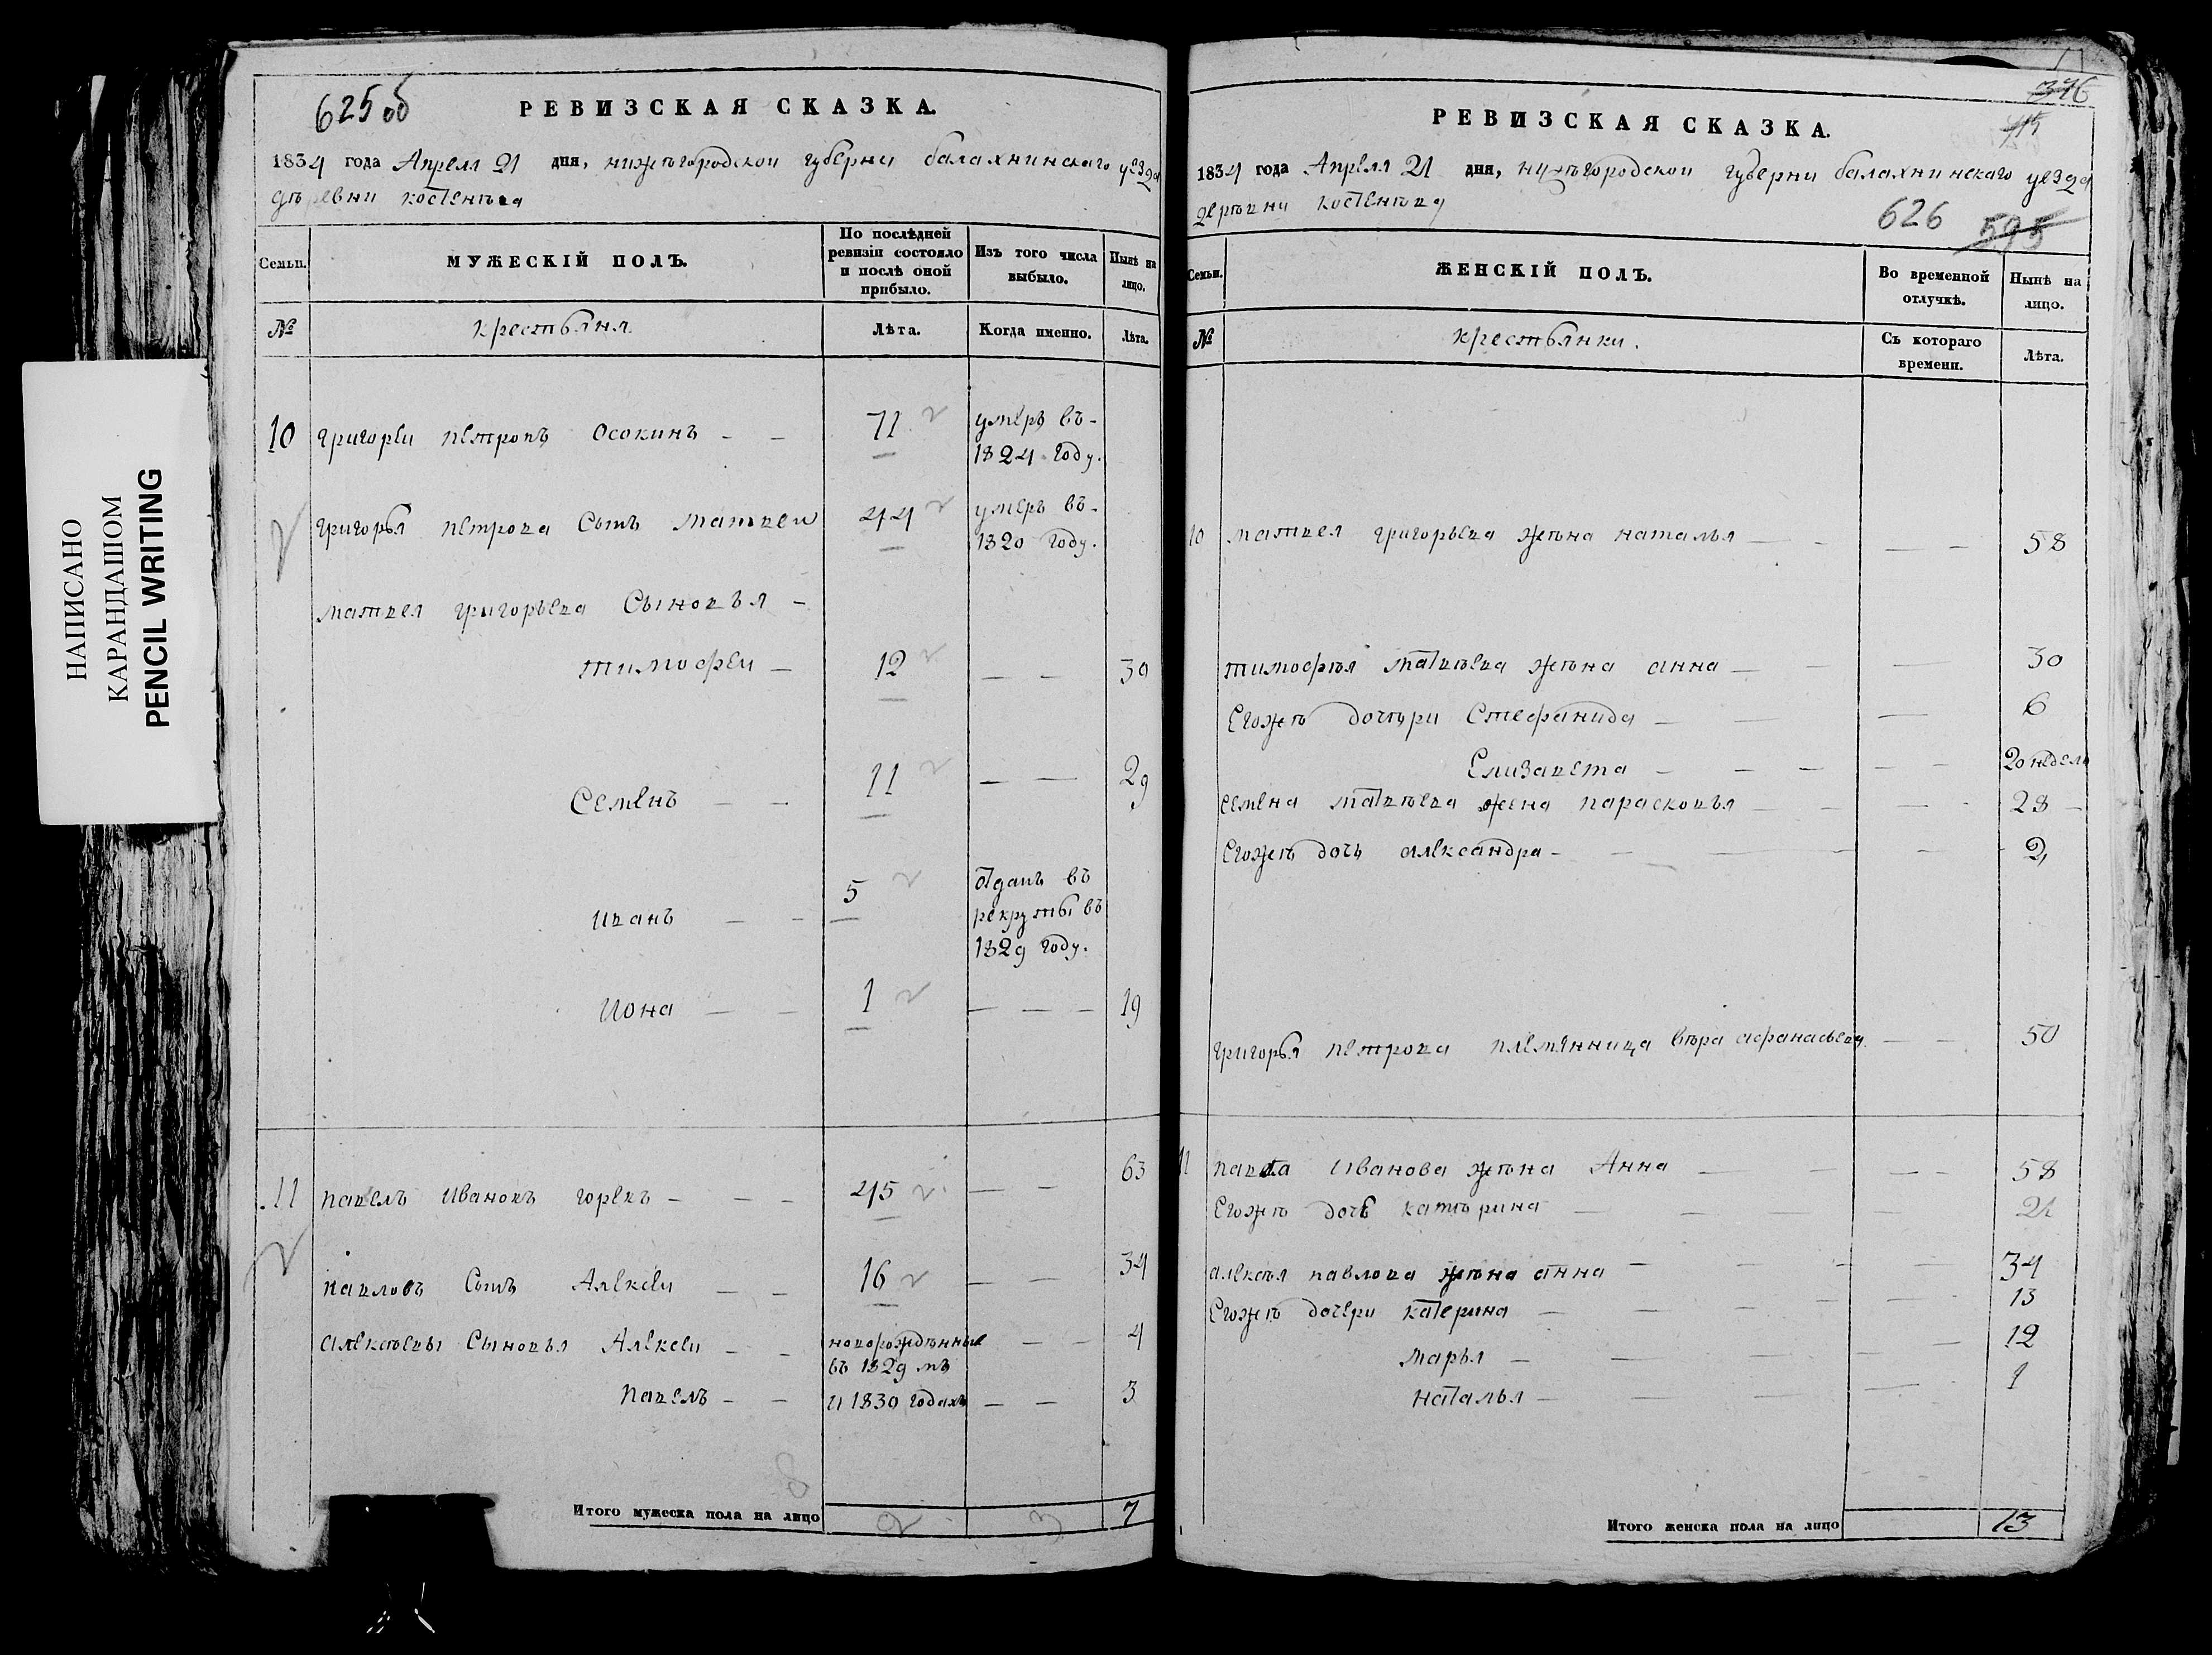 НАПИСАНО
КАРАНДАШОМ
PENCIL WRITING
625 об
РЕВИЗСКАЯ СКАЗКА.
1834 года Апреля 21 дня, нижегородской губерни балахнинскаго уезда
деревни костенева
Семьи.
МУЖЕСКІЙ ПОЛЪ.
По послѣдней ревизіи состояло и послѣ оной прибыло.
Изъ того числа выбыло.
Нынѣ на лицо.
№
крестьяня
Лѣта.
Когда именно.
Лѣта.
10 григореи петровъ Осокинъ - - 71 умеръ въ -
1824 году.
григорья петрова Сынъ матвеи 44 умеръ въ -
1820 году.
матвея григорьева Сыновья -
тимофеи - 12 — — 30
Семенъ - - 11 — — 29
иванъ - - 5 отданъ въ
рекруты въ
1829 году.
иона - - 1 — — — 19
11 павелъ ивановъ горевъ - - - 45 — — 63
павловъ Сынъ Алексеи - - 16 — — 34
алексѣевы Сыновья Алексеи - - новорожденные — — 4
въ 1829 мъ
павелъ - - и 1830 годахъ — — 3
8
Итого мужеска пола на лицо 2 3 7
376
РЕВИЗСКАЯ СКАЗКА.
1834 года Апреля 21 дня, нижегородскои губерни балахнинскаго уезда
деревни костенева
626 595
Семьи.
ЖЕНСКІЙ ПОЛЪ.
Во временной отлучкѣ.
Нынѣ на лицо.
№
крестьянки.
Съ котораго времени.
Лѣта.
10 матвея григорьева жена наталья — - — - 58
тимофѣя матвѣева жена анна — - — 30
Егоже дочери Стефанида — — — 6
Елизавета — - — — - 20 недель
семена матвѣева жена парасковья — - — - 28 -
Егоже дочь александра - - — — - 2
григорья петрова племянница вѣра афанасьева — - 50
11 павла иванова жена Анна — — — - 58
Егоже дочь катерина — — — —
алексѣя павлова жена анна — — - — 34
Егоже дочери катерина — — — — — 13
марья — — — — — 12
наталья — — — — 1
Итого женска пола на лицо 13